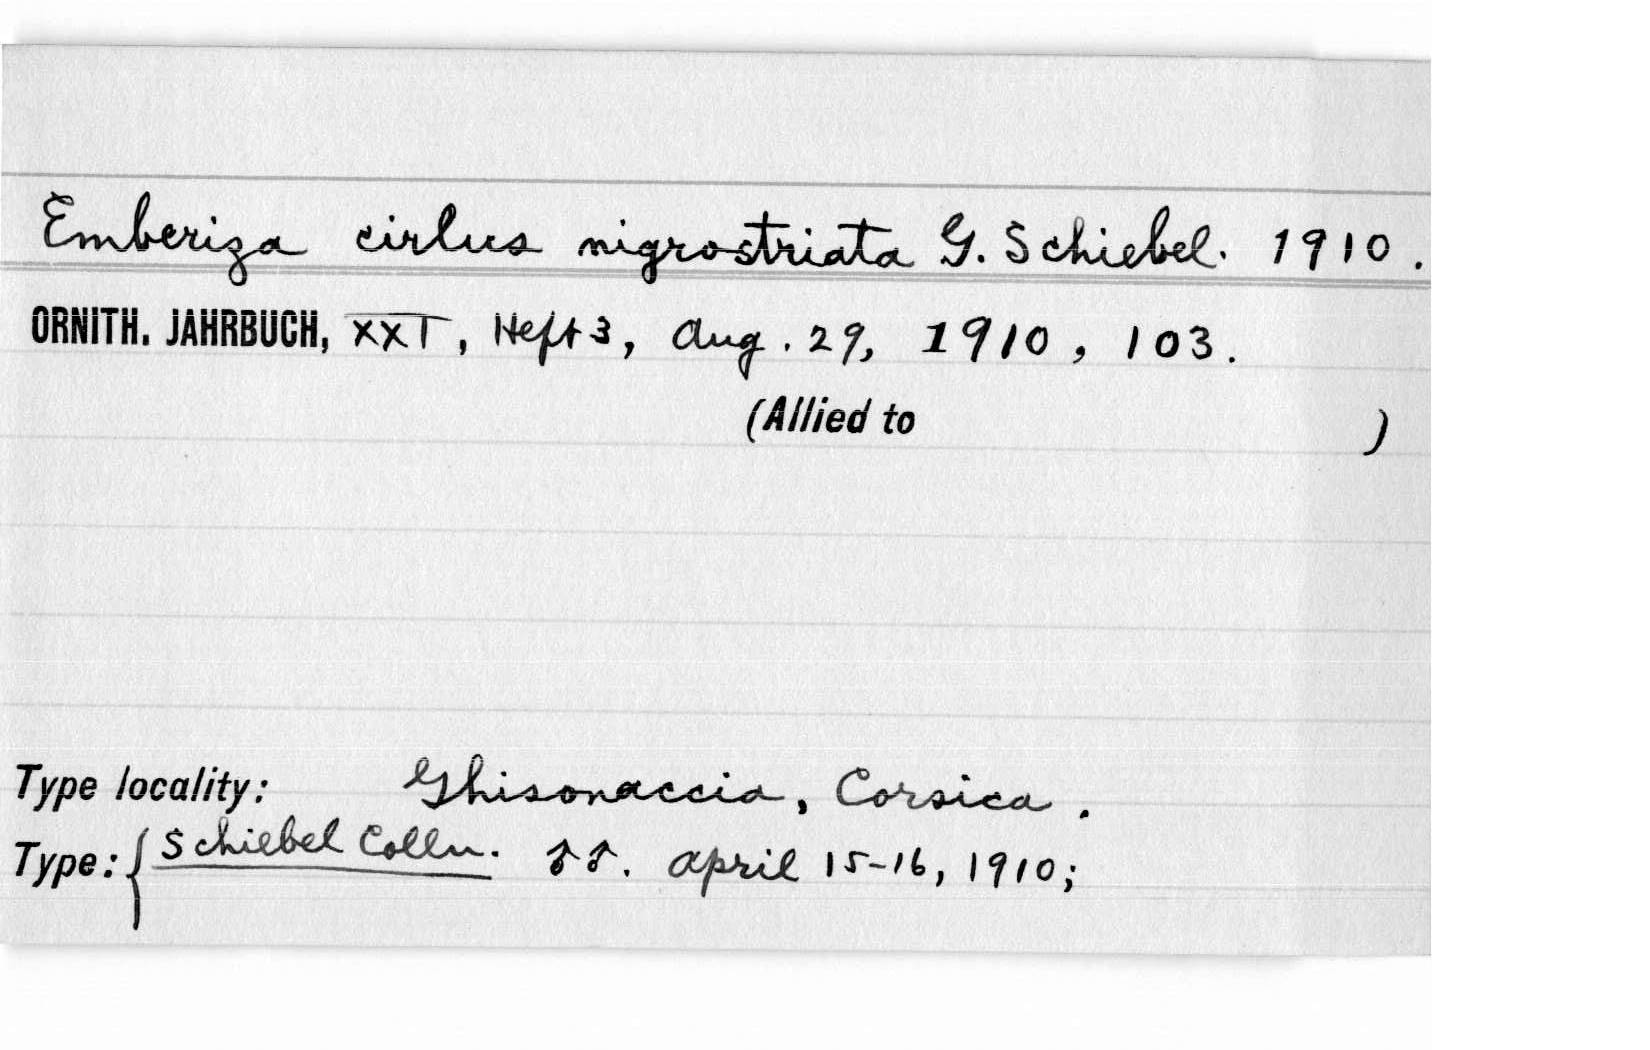 Emberiza cirlus nigrostriata G. Schiebel. 1910.
ORNITH. JAHRBUCH, XXI, Heft 3, Aug. 29, 1910, 103.
(Allied to )
Type locality: Ghisonaccia, Corsica.
Type: { Schiebel Colln. ♂♂. April 15-16, 1910;